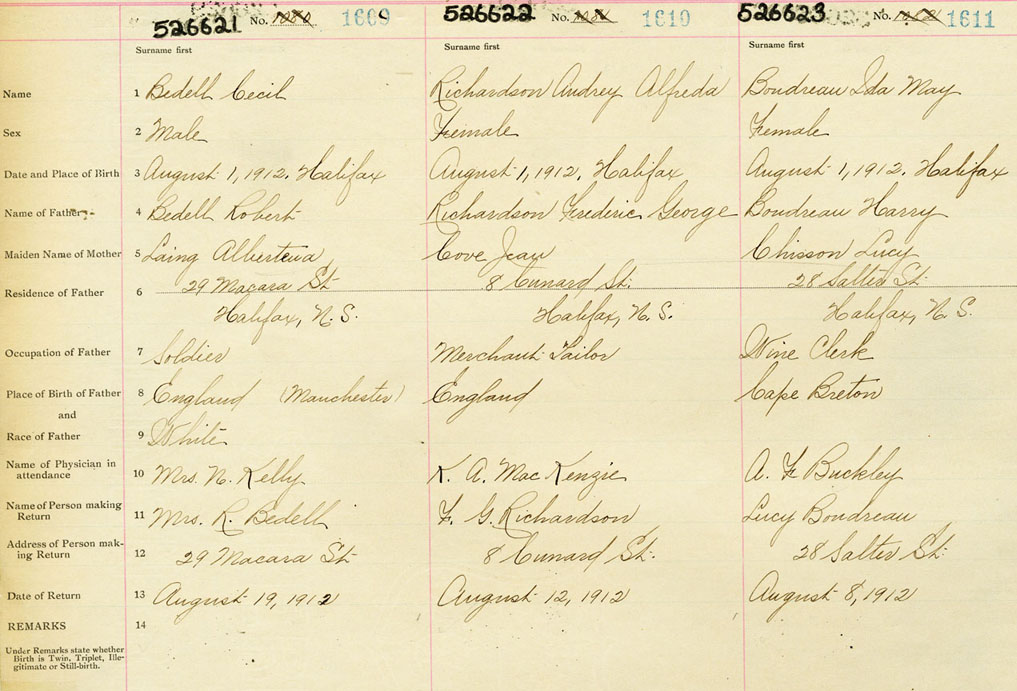 526621 No. 1609
526622 No. 1610
526623 No. 1611
Surname first Surname first Surname first
Name 1 Bedell Cecil Richardson Audrey Alfreda Boudreau Ida May
Sex 2 Male Female Female
Date and Place of Birth 3 August 1, 1912, Halifax August 1, 1912, Halifax August 1, 1912, Halifax
Name of Father 4 Bedell Robert Richardson Frederic George Boudreau Harry
Maiden Name of Mother 5 Laing Cove Jean Chisson Lucy
Residence of Father 6 29 Macara St. 8 Cunard St. 28 Salter St.
Halifax, N.S. Halifax, N.S. Halifax, N.S.
Occupation of Father 7 Soldier Merchant Tailor Wine Clerk
Place of Birth of Father 8 England (Manchester) England Cape Breton
and
Race of Father 9 White
Name of Physician in attendance 10 Mrs. N. Kelly K. A. MacKenzie A. F. Buckley
Name of Person making Return 11 Mrs. R. Bedell F. G. Richardson Lucy Boudreau
Address of Person making Return 12 29 Macara St. 8 Cunard St. 28 Salter St.
Date of Return 13 August 19, 1912 August 12, 1912 August 8, 1912
REMARKS 14
Under Remarks state whether
Birth is Twin, Triplet, Ille-
gitimate or Still-birth.